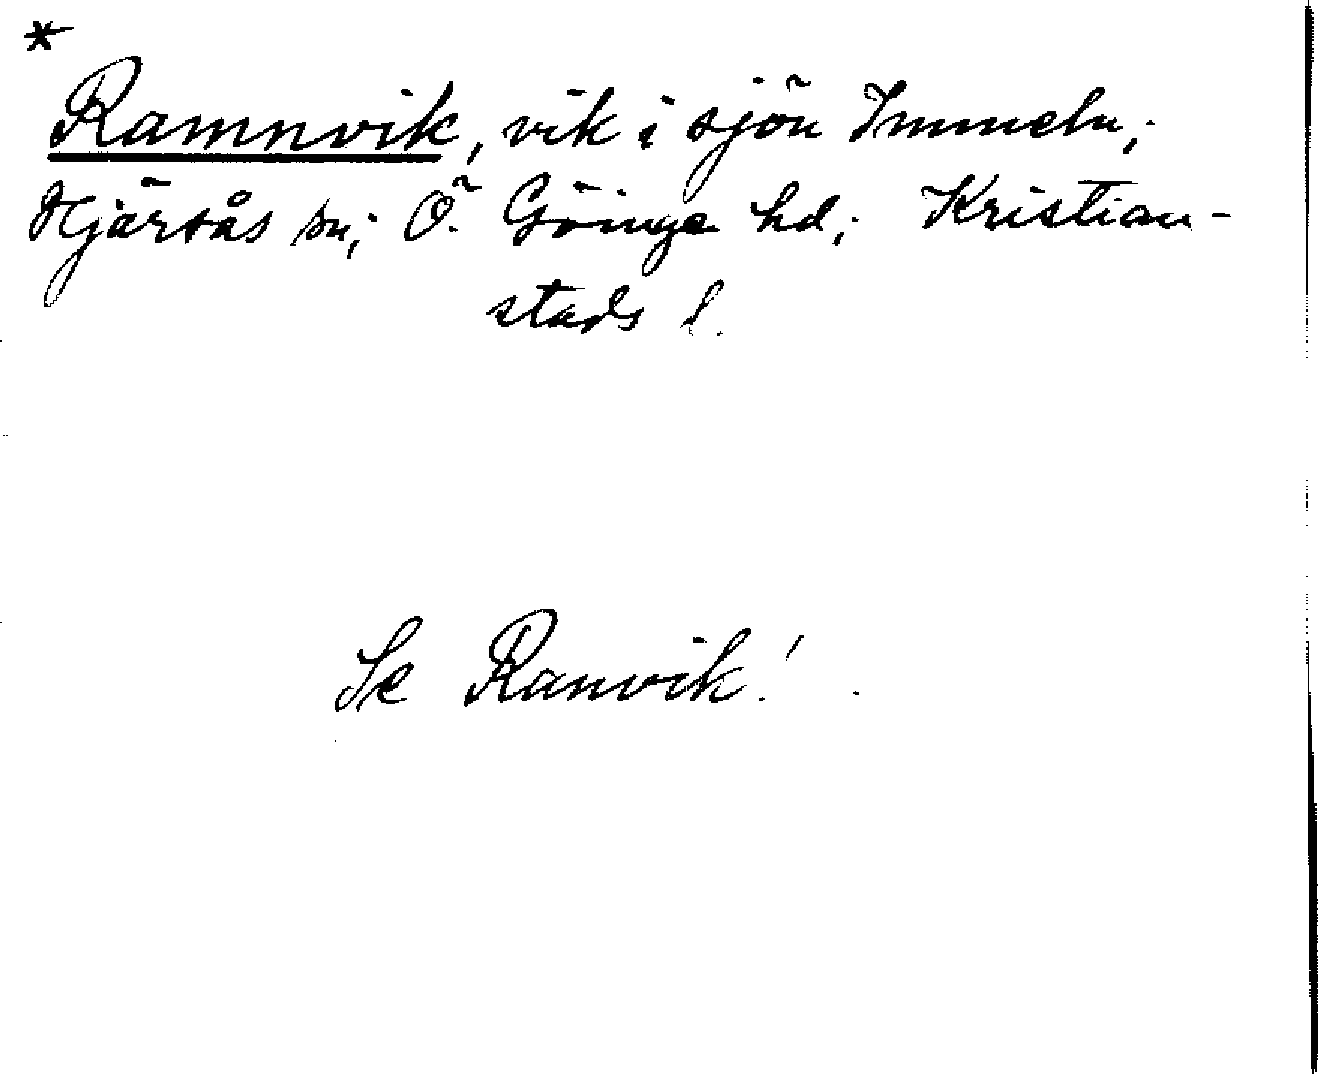 *
Ramnvik, vik i sjön Immeln;
Hjärsås sn; Ö. Göinge hd; Kristian-
stads l.
Se Ranvik!